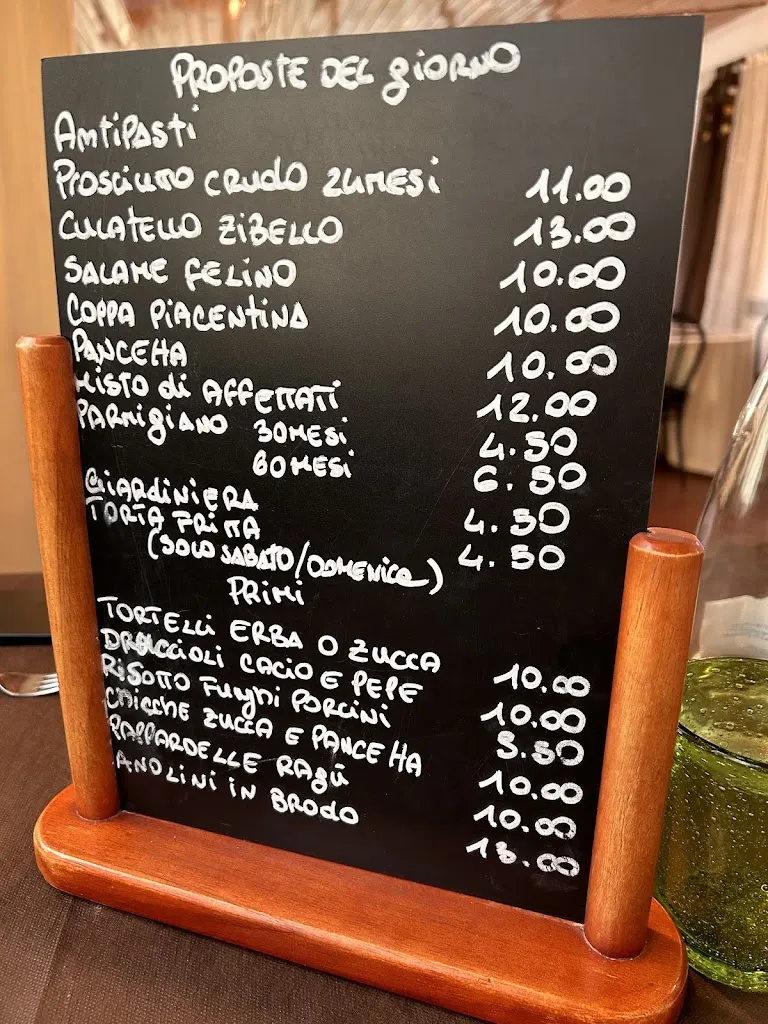 PROPOSTE DEL GIORNO
Antipasti
PROSCIUTTO CRUDO 24MESI 11.00
CULATELLO ZIBELLO 13.00
SALAME FELINO 10.00
COPPA PIACENTINA 10.00
PANCETTA 10.00
MISTO di AFFETTATI 12.00
PARMIGIANO 30MESI 4.50
60MESI 6.50
GIARDINIERA 4.50
TORTA FRITTA 4.50
(SOLO SABATO/DOMENICA)
PRIMI
TORTELLI ERBA O ZUCCA 10.00
CACIO E PEPE 10.00
RISOTTO FUNGHI PORCINI 9.50
CHICCHE ZUCCA E PANCETTA 10.00
PAPPARDELLE RAGÙ 10.00
ANOLINI IN BRODO 13.00